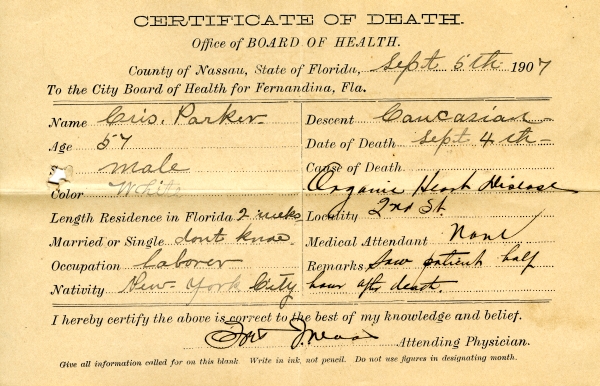 CERTIFICATE OF DEATH.
Office of BOARD OF HEALTH.
County of Nassau, State of Florida, Sept 5th 1907
To the City Board of Health for Fernandina, Fla.
Name Cris. Parker
Age 57
male
Color White
Length Residence in Florida 2 weeks
Married or Single dont know
Occupation Laborer
Nativity New York City
Descent Caucasian
Date of Death Sept 4th
Cause of Death
Organic Heart Disease
Locality 2nd St.
Medical Attendant None
Remarks Saw patient half
hour after death.
I hereby certify the above is correct to the best of my knowledge and belief.
Attending Physician.
Give all information called for on this blank. Write in ink, not pencil. Do not use figures in designating month.